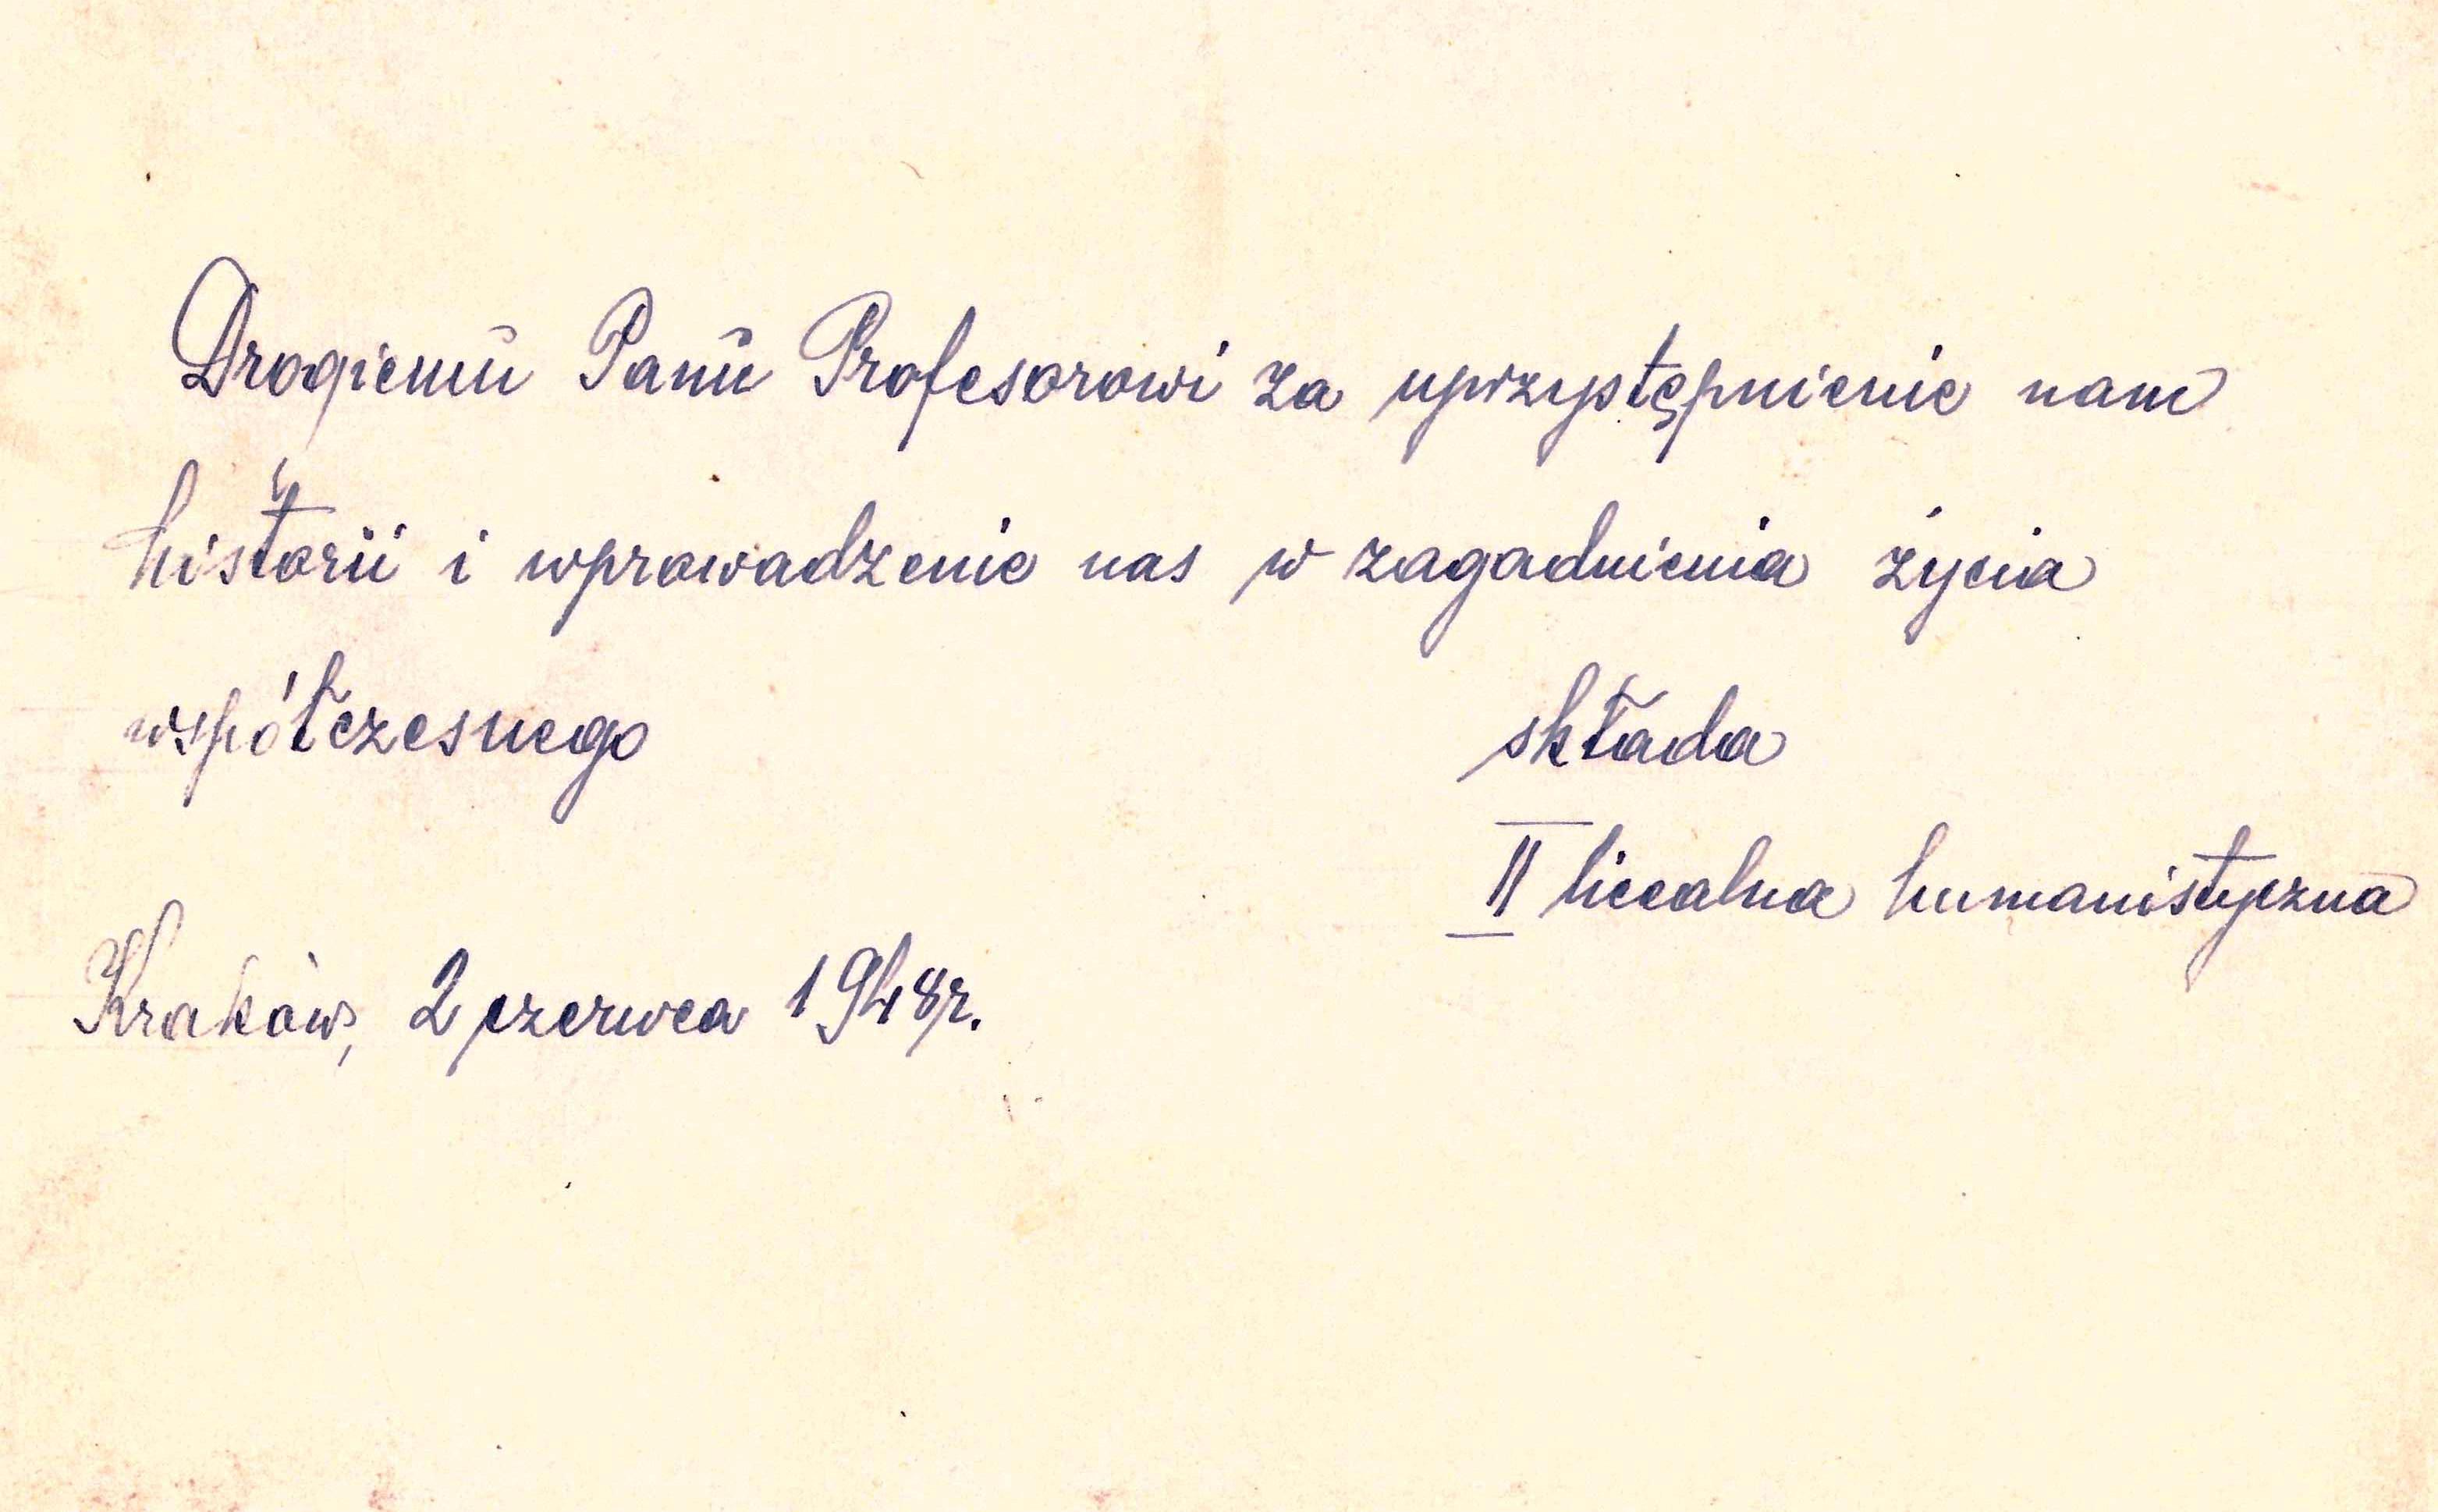 Drogiemu Panu Profesorowi za uprzystępnienie nam
historii i wprowadzenie nas w zagadnienia życia
współczesnego składa
II licealna humanistyczna
Kraków, 2 czerwca 1948r.